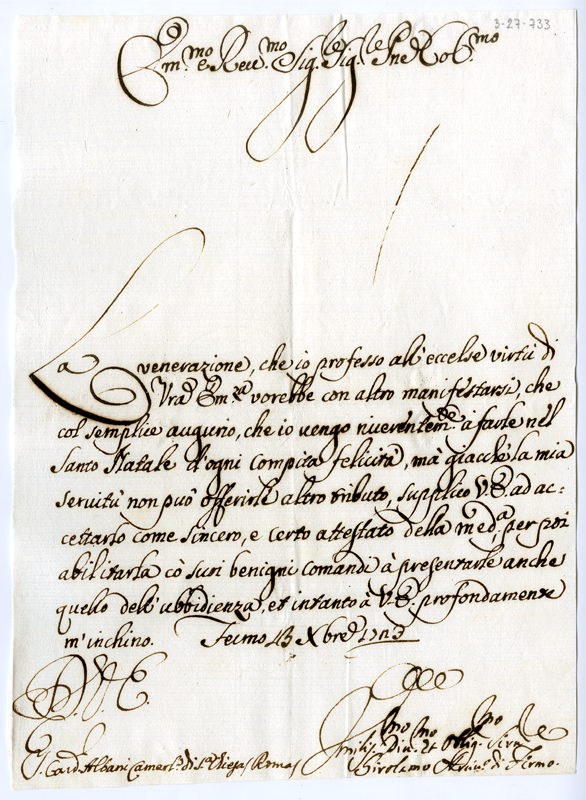 3-27-733
Em.mo e Rev.mo Sig.re Sig.re Pne Col.mo
La venerazione, che io professo all'eccelse virtù di
Vra Em.za vorebbe con altro manifestarsi, che
col semplice augurio, che io vengo riverentem.te à farle nel
Santo Natale d'ogni compita felicità, mà giacchè la mia
servitù non può offerirle altro tributo, supplico V.E. ad ac=
cettarlo come sincero, e certo attestato della med.a, per poi
abilitarla cò suoi benigni comandi à presentarle anche
quello dell'ubbidienza, et intanto à V.E. profondamente
m'inchino. Fermo 13 Xbre
D.V.E.
S. Card Albani Camerl.o di S.a Chiesa / Roma /
Umilis.mo Div.mo et Oblig.mo Serv.re
Girolamo Arciv.o di Fermo.